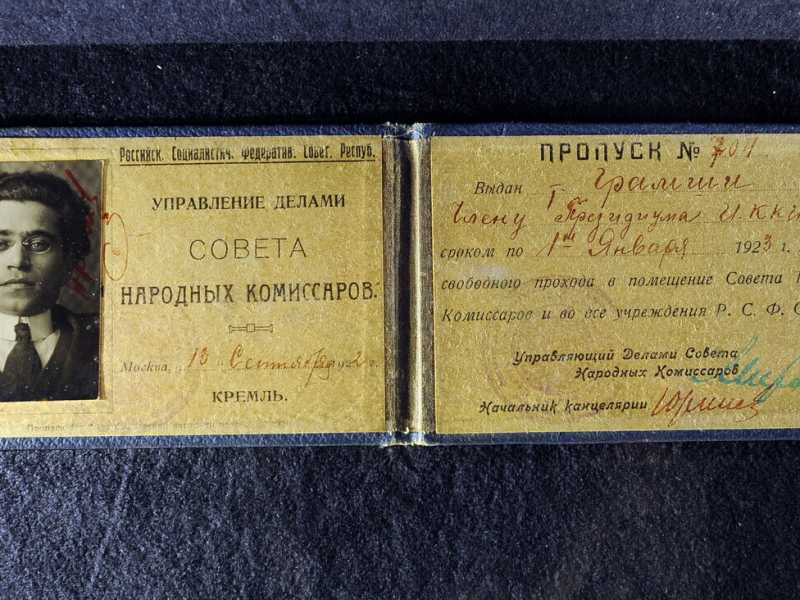 Российск. Социалистич. Федератив. Совет. Респуб.
УПРАВЛЕНИЕ ДЕЛАМИ
СОВЕТА
НАРОДНЫХ КОМИССАРОВ.
Москва, 13 Сентября 1922 г.
КРЕМЛЬ.
ПРОПУСК № 704
Выдан т. Грамши
Члену Президиума ИККИ
сроком по 1ое Января 1923 г.
свободного прохода в помещение Совета
Комиссаров и во все учреждения Р. С. Ф. С
Управляющий Делами Совета
Народных Комиссаров
Начальник канцелярии